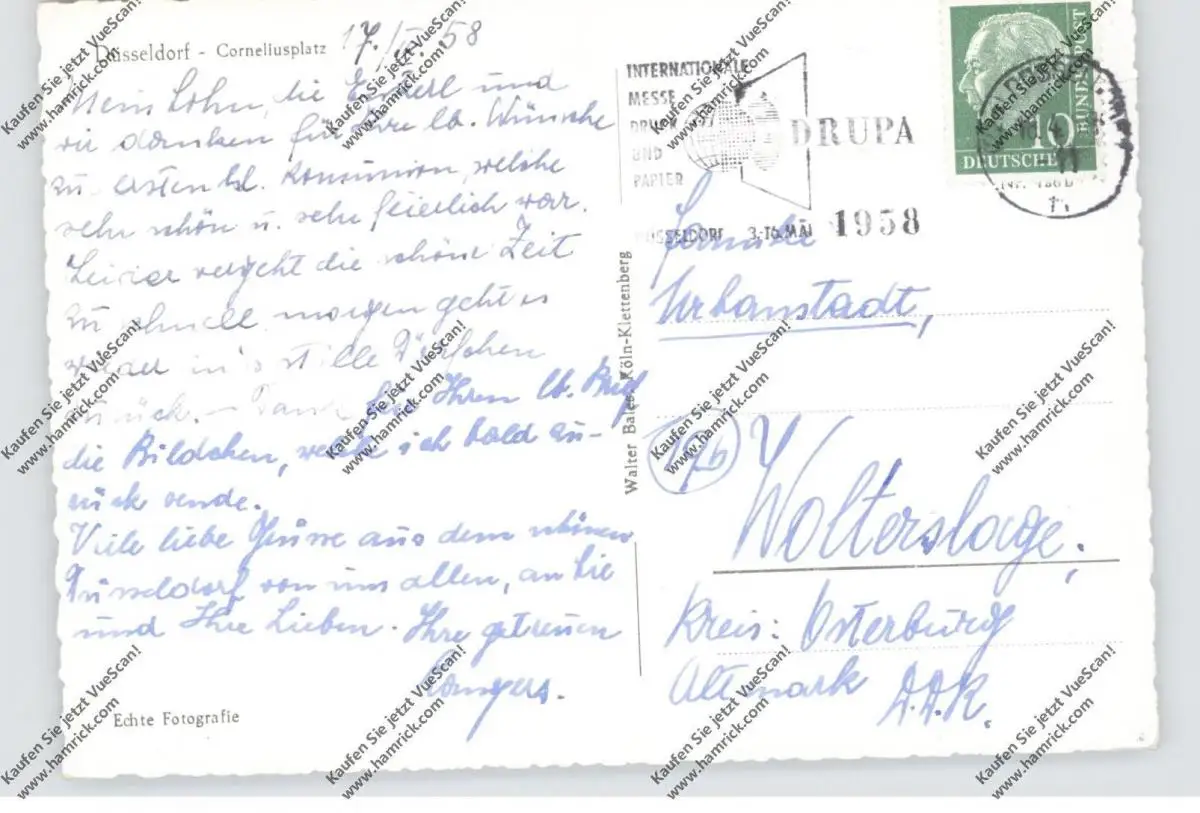 Düsseldorf - Corneliusplatz 17./IV. 58
Mein Sohn, die Enkerl und
wir danken für Ihre lb. Wünsche
zu ersten hl. Komunion, welche
sehr schön u. sehr feierlich war.
Leider vergeht die schöne Zeit
zu schnell morgen geht es
wieder in's stille Dörfchen
zurück. — Danke für Ihren lb. Brief
die Bildchen, welche ich bald zu-
rück sende.
Viele liebe Grüsse aus dem schönen
Düsseldorf von uns allen, an Sie
und Ihre Lieben. Ihre getreuen
Echte Fotografie
Walter Bales, Köln-Klettenberg
INTERNATIONALE
MESSE
DRUCK
UND
PAPIER
DRUPA
DÜSSELDORF 3.-16. MAI 1958
10
DEUTSCHE
BUNDESPOST
Familie
Urbanstadt,
(19b)
Wolterslage,
Kreis: Osterburg
Altmark
D.D.R.
Kaufen Sie jetzt VueScan!
www.hamrick.com